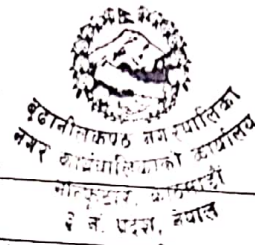 बुढानीलकण्ठ नगरपालिका
नगर कार्यपालिकाको कार्यालय
काठमाडौं
३ नं. प्रदेश, नेपाल